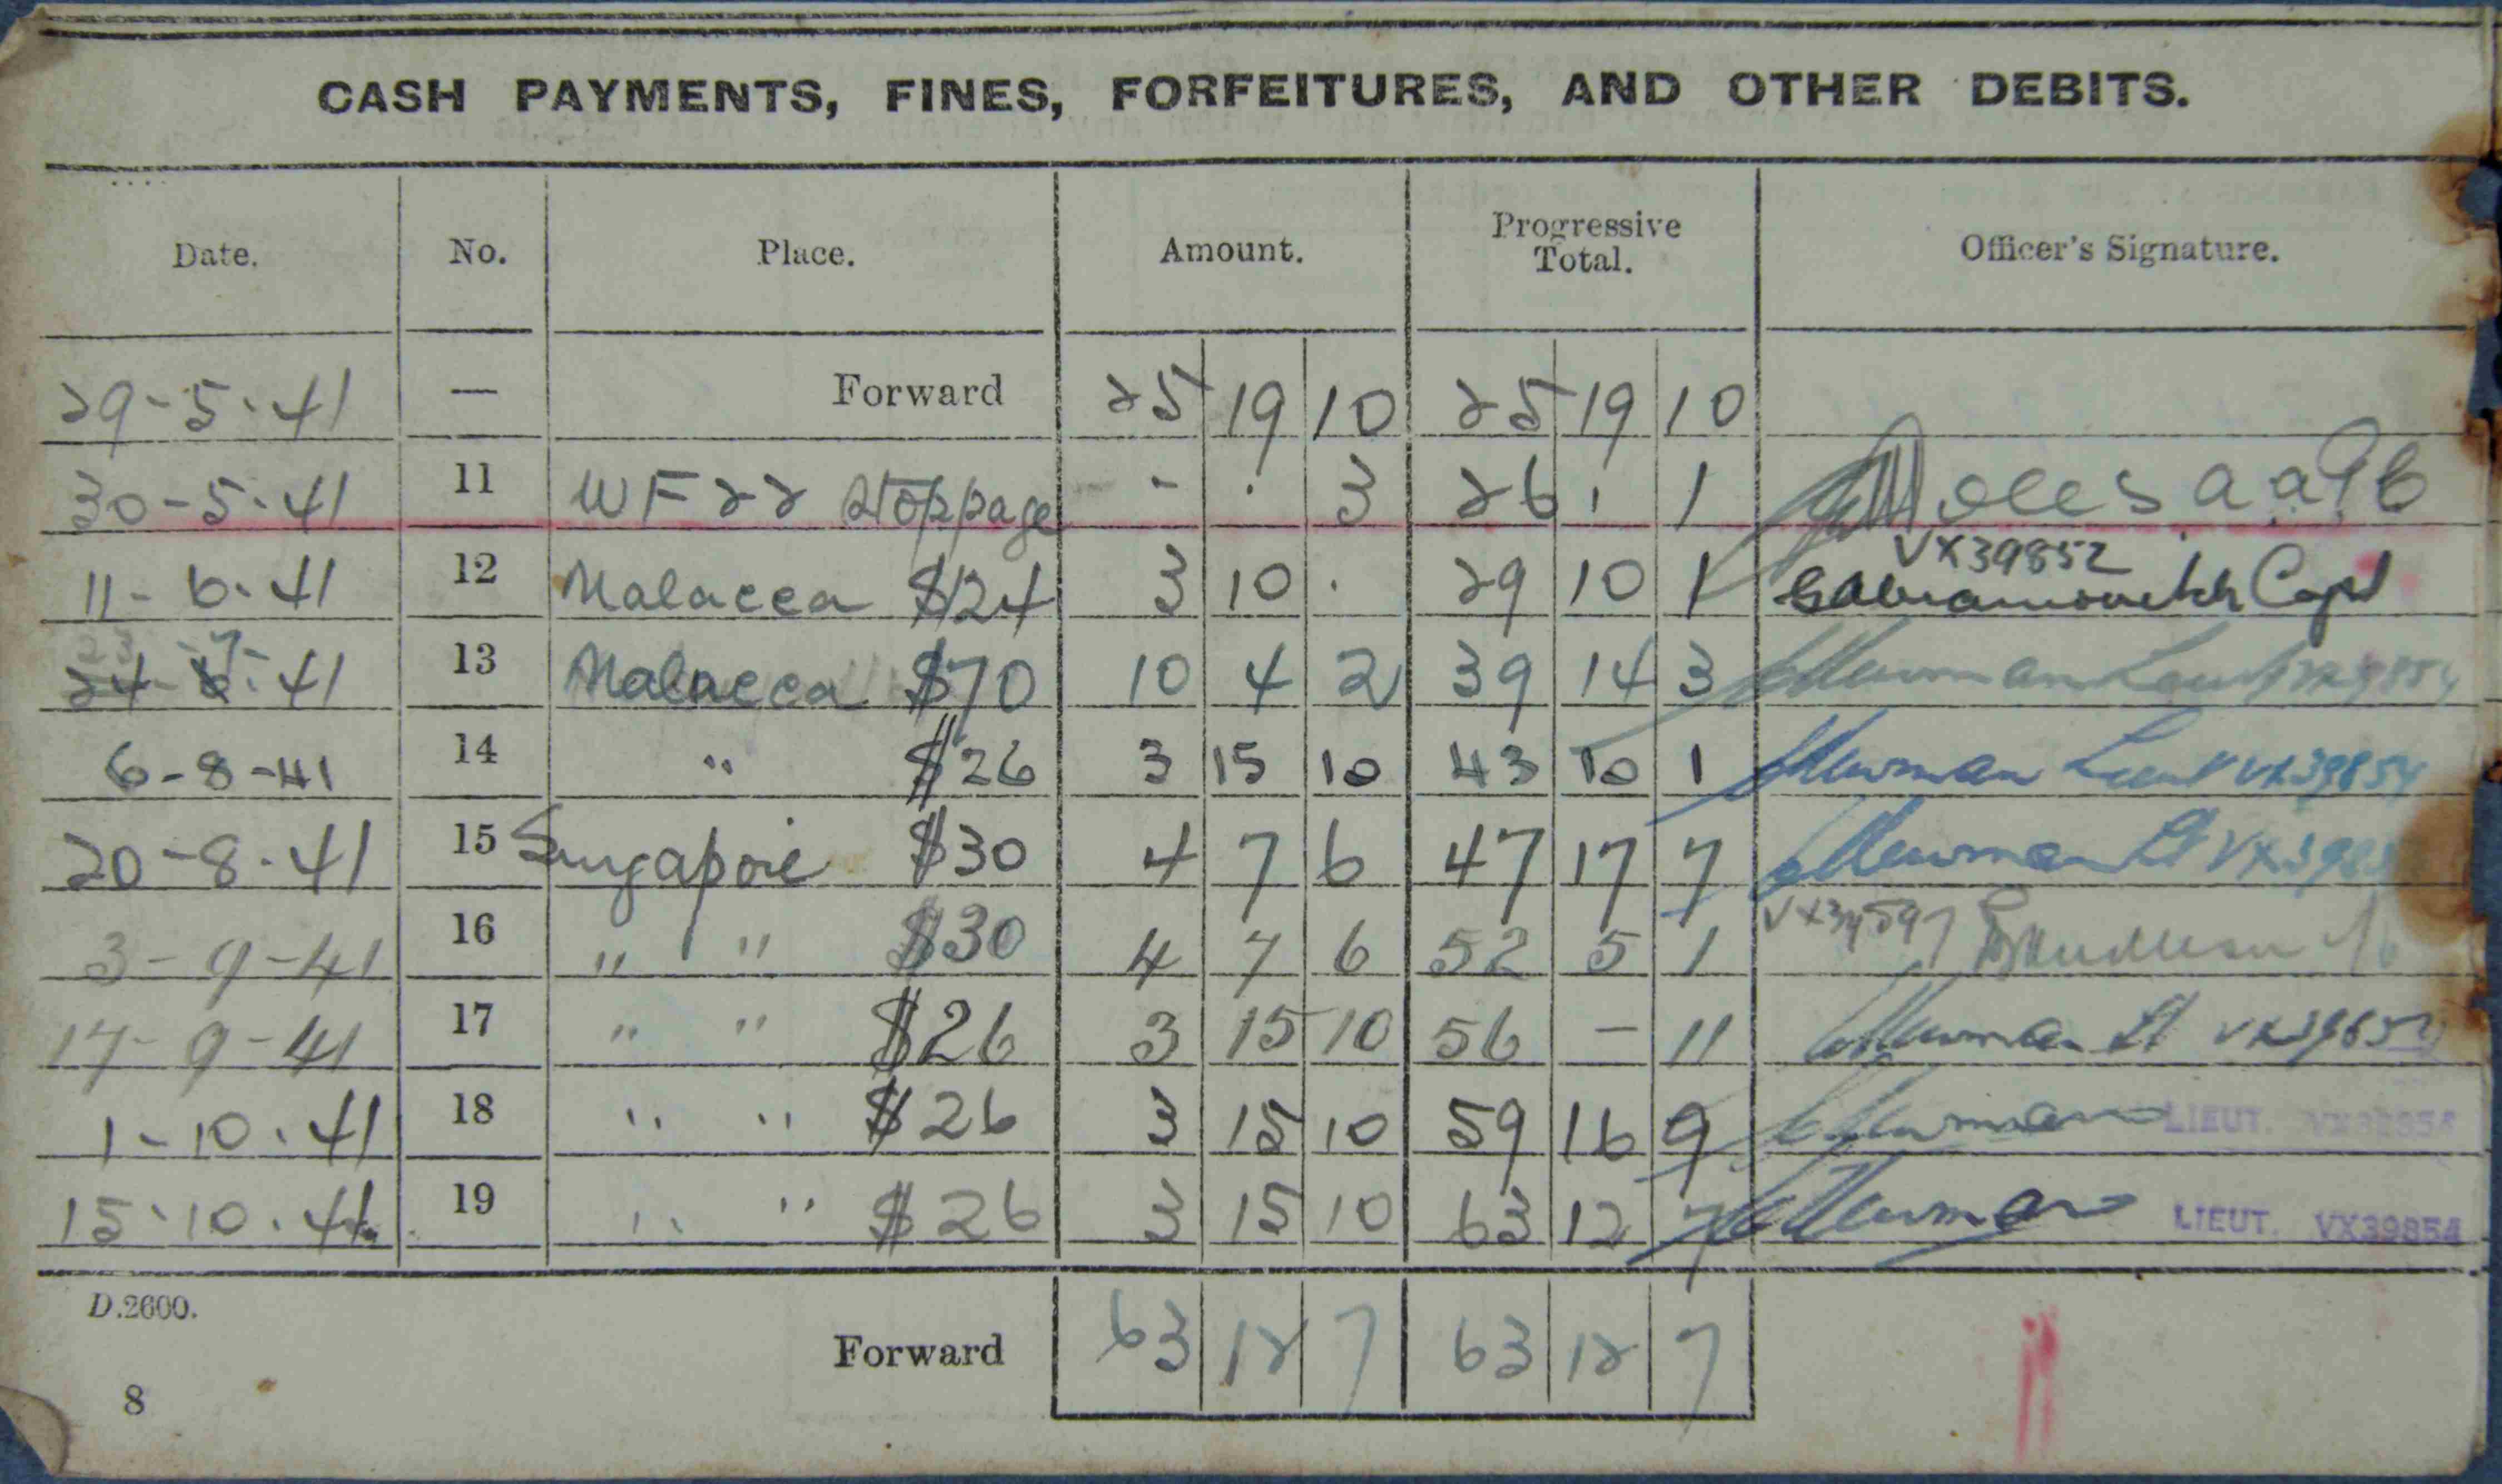 CASH PAYMENTS, FINES, FORFEITURES, AND OTHER DEBITS.
Date. No. Place. Amount. Progressive Total. Officer's Signature.
29-5-41 — Forward 25 19 10 25 19 10
30-5-41 11 WF22 Stoppage - . 3 26 . 1
VX39852
11-6-41 12 Malacca $24 3 10 . 29 10 1 Capt
23 -7-
24-6-41 13 Malacca $70 10 4 2 39 14 3 Newman Lieut
6-8-41 14 " $26 3 15 10 43 10 1 Newman Lieut VX39854
20-8-41 15 Singapore $30 4 7 6 47 17 7 Newman Lt
3-9-41 16 " " $30 4 7 6 52 5 1
17-9-41 17 " " $26 3 15 10 56 — 11 Newman Lt
1-10-41 18 " " $26 3 15 10 59 16 9 Newman LIEUT. VX39854
15-10-41 19 " " $26 3 15 10 63 12 7 Newman LIEUT. VX39854
D.2600.
Forward 63 12 7 63 12 7
8